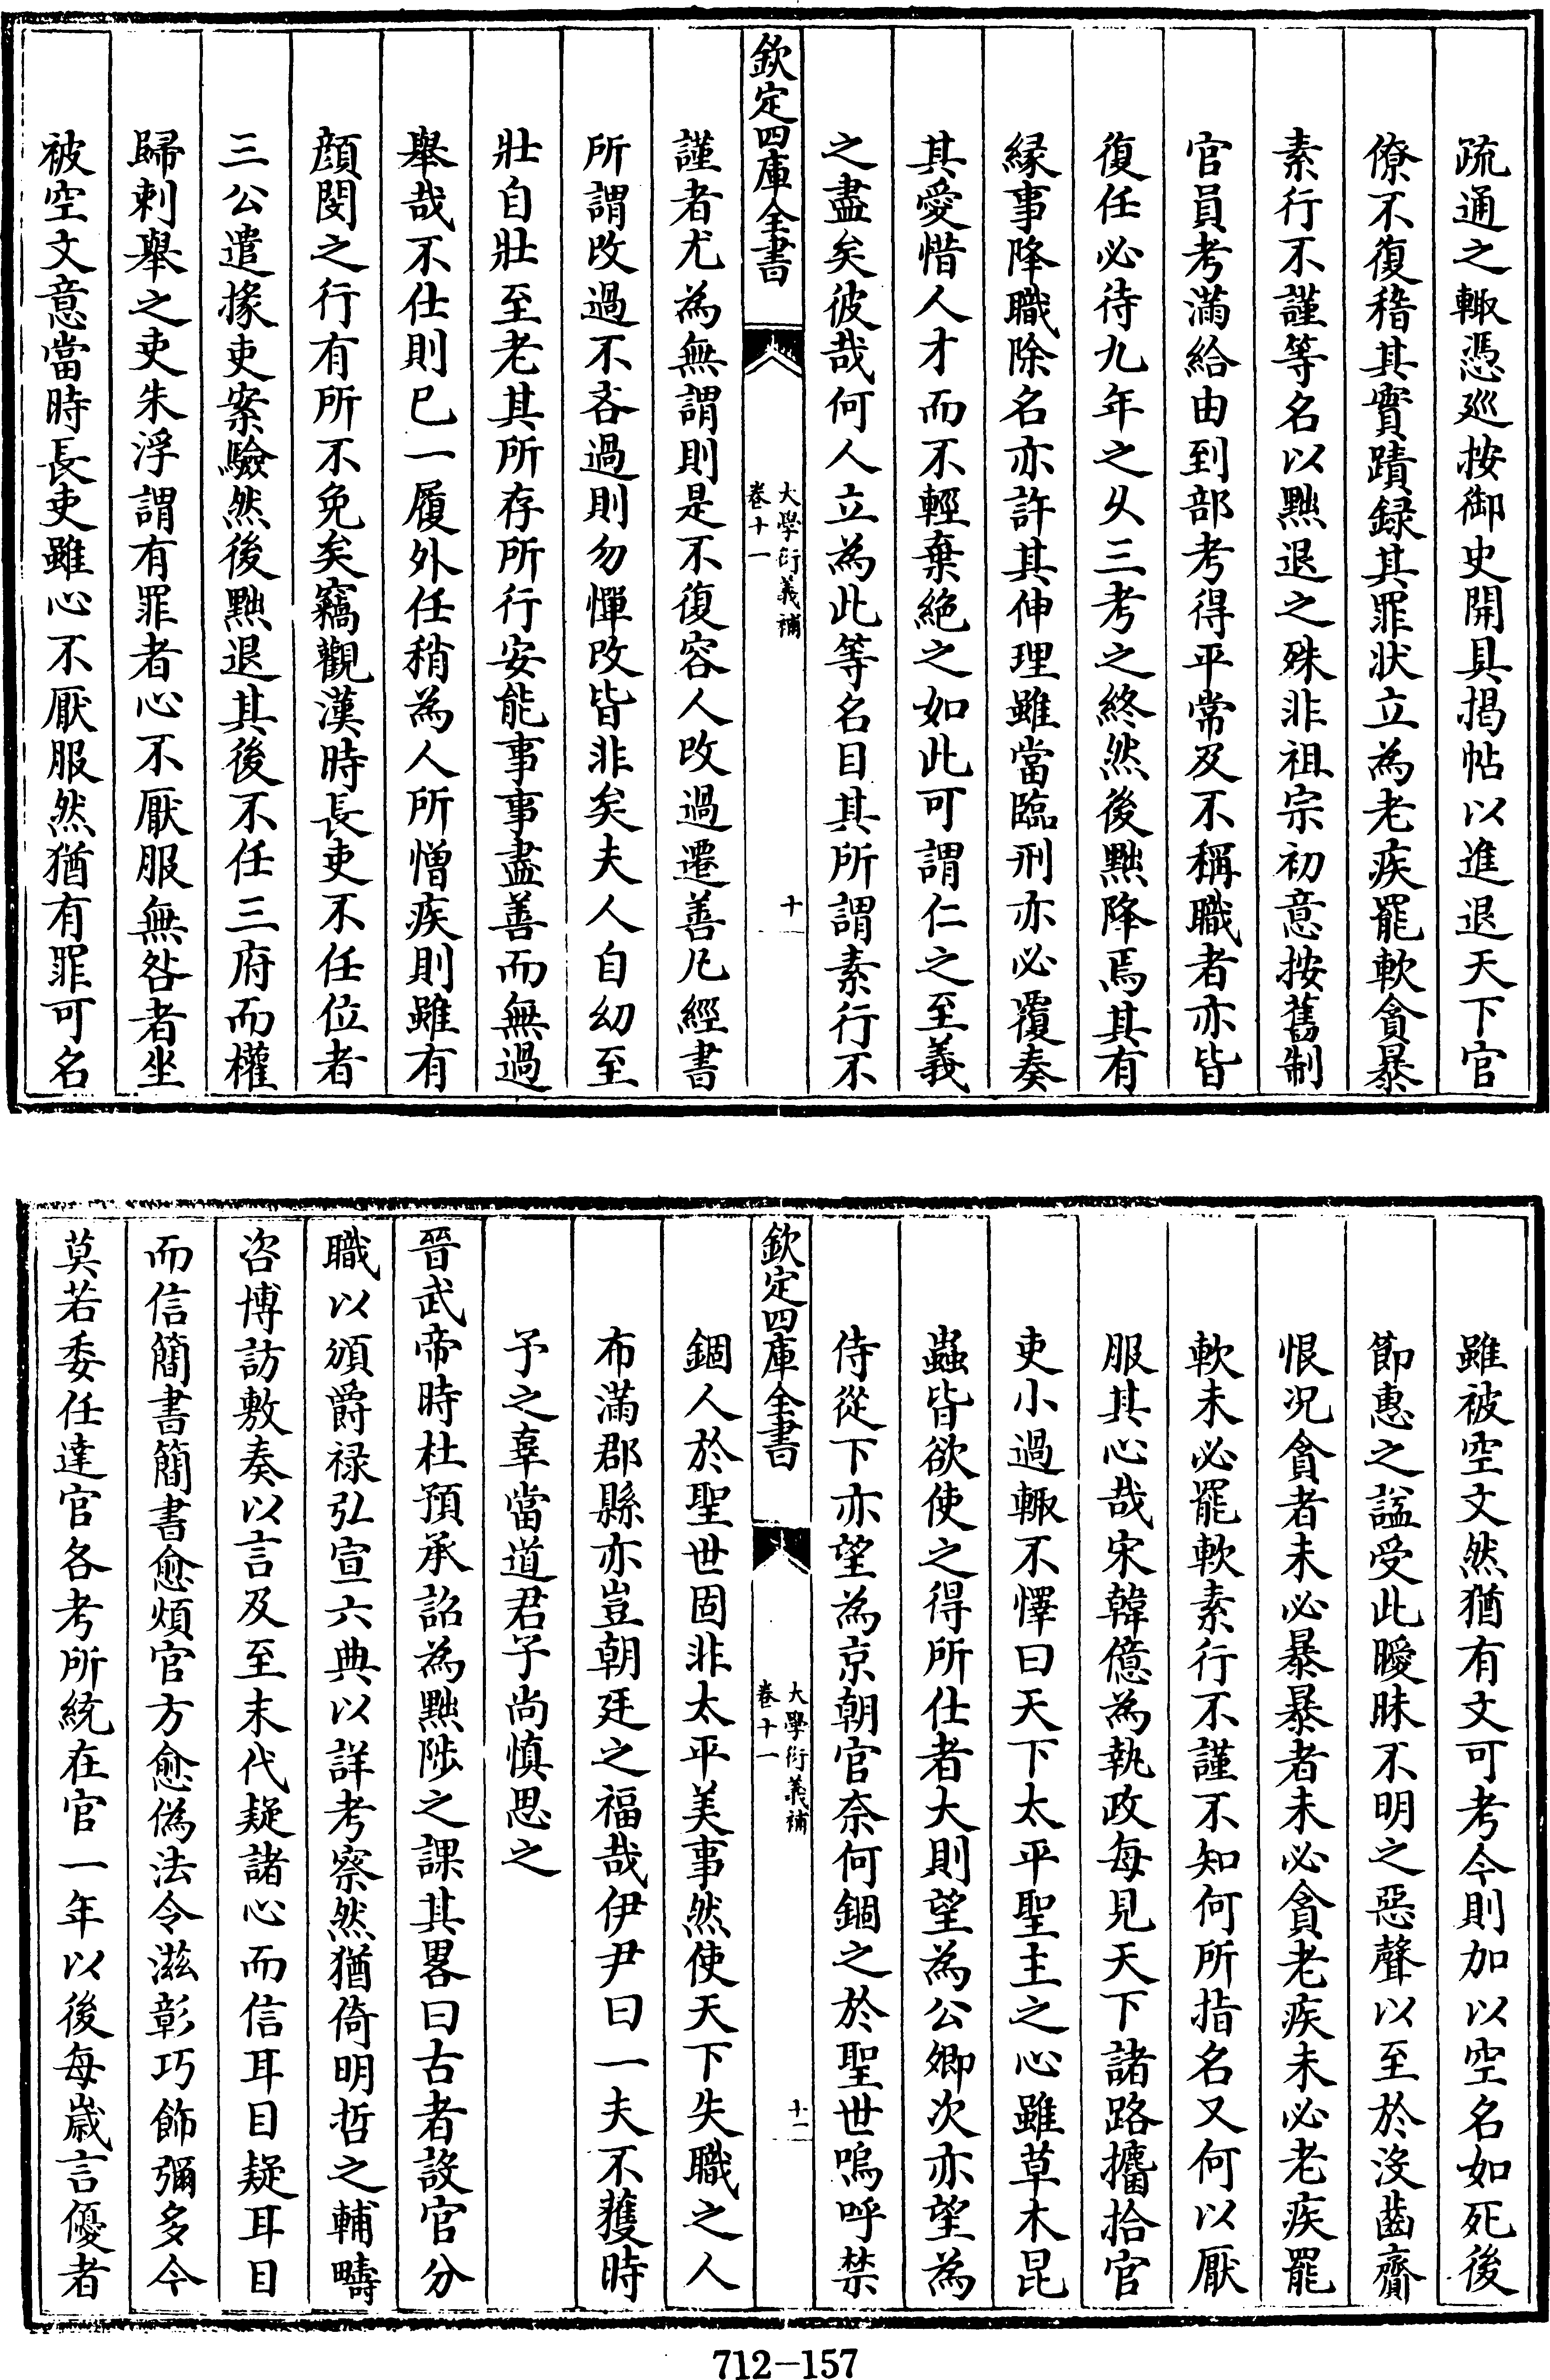 疏通之輙憑廵按御史開具揭帖以進退天下官
僚不復稽其實蹟録其罪狀立為老疾罷軟貪暴
素行不謹等名以黜退之殊非祖宗初意按舊制
官員考滿給由到部考得平常及不稱職者亦皆
復任必待九年之乆三考之終然後黜降焉其有
縁事降職除名亦許其伸理雖當臨刑亦必覆奏
其愛惜人才而不輕棄絶之如此可謂仁之至義
之盡矣彼哉何人立為此等名目其所謂素行不
欽定四庫全書
大學衍義補
卷十一
十
謹者尤為無謂則是不復容人改過遷善凡經書
所謂改過不吝過則勿憚改皆非矣夫人自幼至
壯自壯至老其所存所行安能事事盡善而無過
舉哉不仕則已一履外任稍為人所憎疾則雖有
顔閔之行有所不免矣竊觀漢時長吏不任位者
三公遣掾吏案驗然後黜退其後不任三府而權
歸刺舉之吏朱浮謂有罪者心不厭服無咎者坐
被空文意當時長吏雖心不厭服然猶有罪可名
雖被空文然猶有文可考今則加以空名如死後
節惠之諡受此曖昧不明之惡聲以至於沒齒齎
恨况貪者未必暴暴者未必貪老疾未必老疾罷
軟未必罷軟素行不謹不知何所指名又何以厭
服其心哉宋韓億為執政每見天下諸路攟拾官
吏小過輙不懌曰天下太平聖主之心雖草木昆
蟲皆欲使之得所仕者大則望為公卿次亦望為
侍從下亦望為京朝官奈何錮之於聖世嗚呼禁
欽定四庫全書
大學衍義補
卷十一
十一
錮人於聖世固非太平美事然使天下失職之人
布滿郡縣亦豈朝廷之福哉伊尹曰一夫不獲時
予之辜當道君子尚慎思之
晉武帝時杜預承詔為黜陟之課其畧曰古者設官分
職以頒爵禄弘宣六典以詳考察然猶倚明哲之輔疇
咨博訪敷奏以言及至末代疑諸心而信耳目疑耳目
而信簡書簡書愈煩官方愈偽法令滋彰巧飾彌多今
莫若委任達官各考所統在官一年以後每歲言優者
712-157